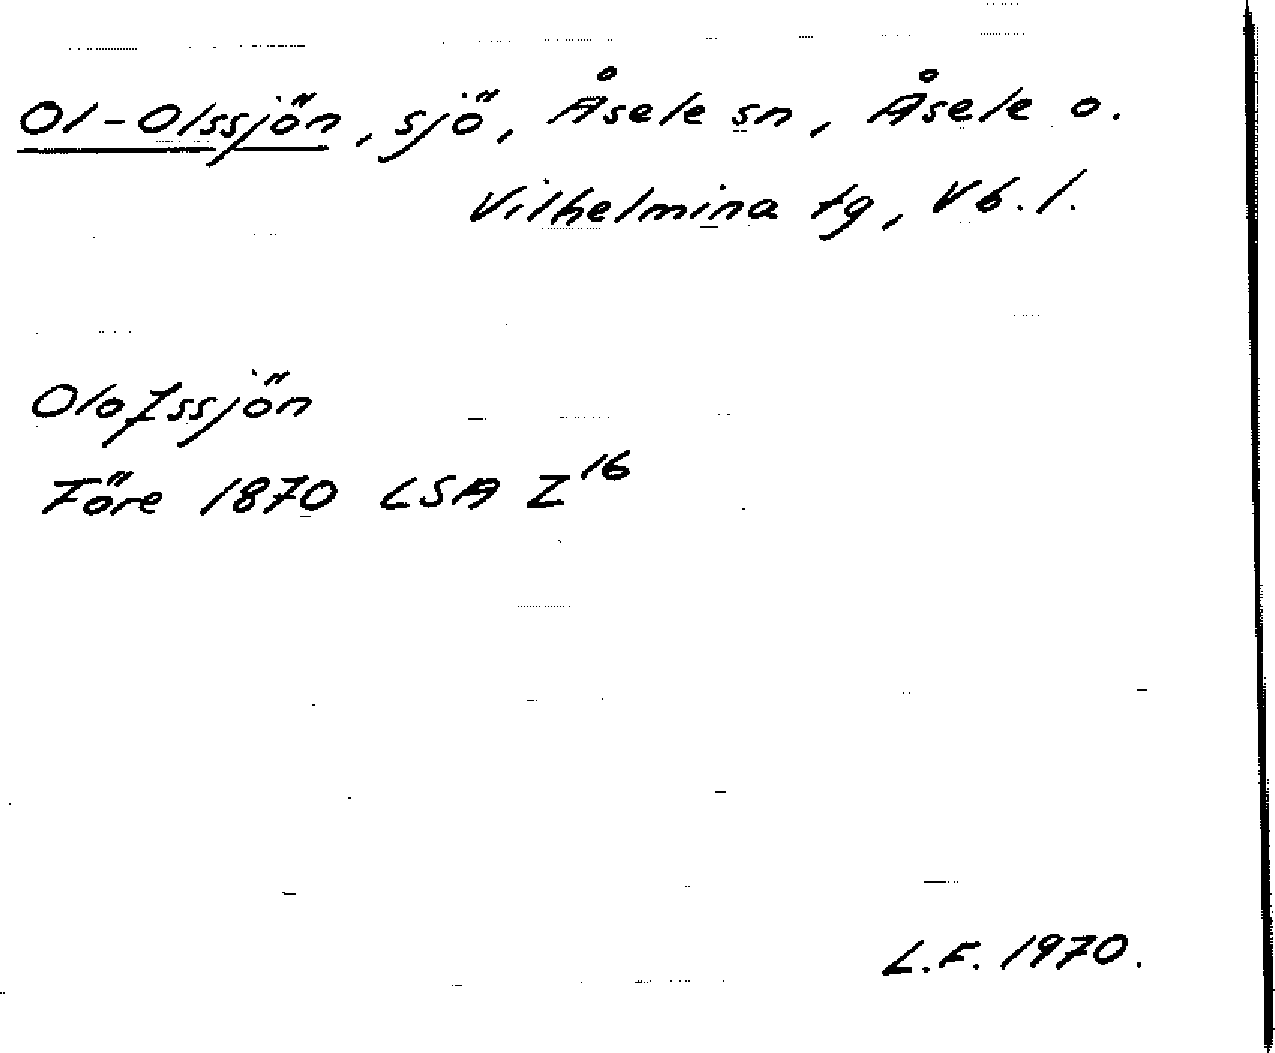 Ol-Olssjön, sjö, Åsele sn, Åsele o.
Vilhelmina tg, Vb. l.
Olofssjön
Före 1870 LSA Z16
L.F. 1970.